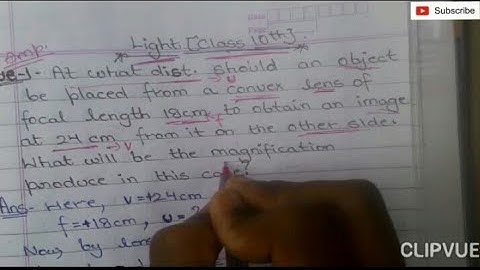 Subscribe
Imp.
Light [Class 10th].
Que-1- At what dist. should an object
u
be placed from a convex lens of
focal length 18cm to obtain an image
f
at 24 cm from it on the other side.
v
What will be the magnification
produce in this case.
Ans- Here, v=+24cm
f=+18cm, u=?
Now, by lens
CLIPVUE